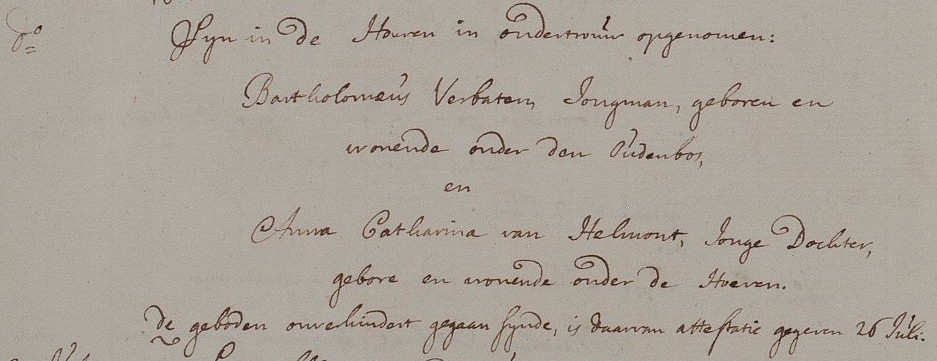 do
Syn in de Hoeven in ondertrouw opgenomen:
Bartholomeus Verbaten, Jongman, geboren en
wonende onder den Oudenbos,
en
Anna Catharina van Helmont, Jonge Dochter,
gebore en wonende onder de Hoeven.
de geboden onverhindert gegaan synde, is daarvan attestatie gegeven 26 Juli.